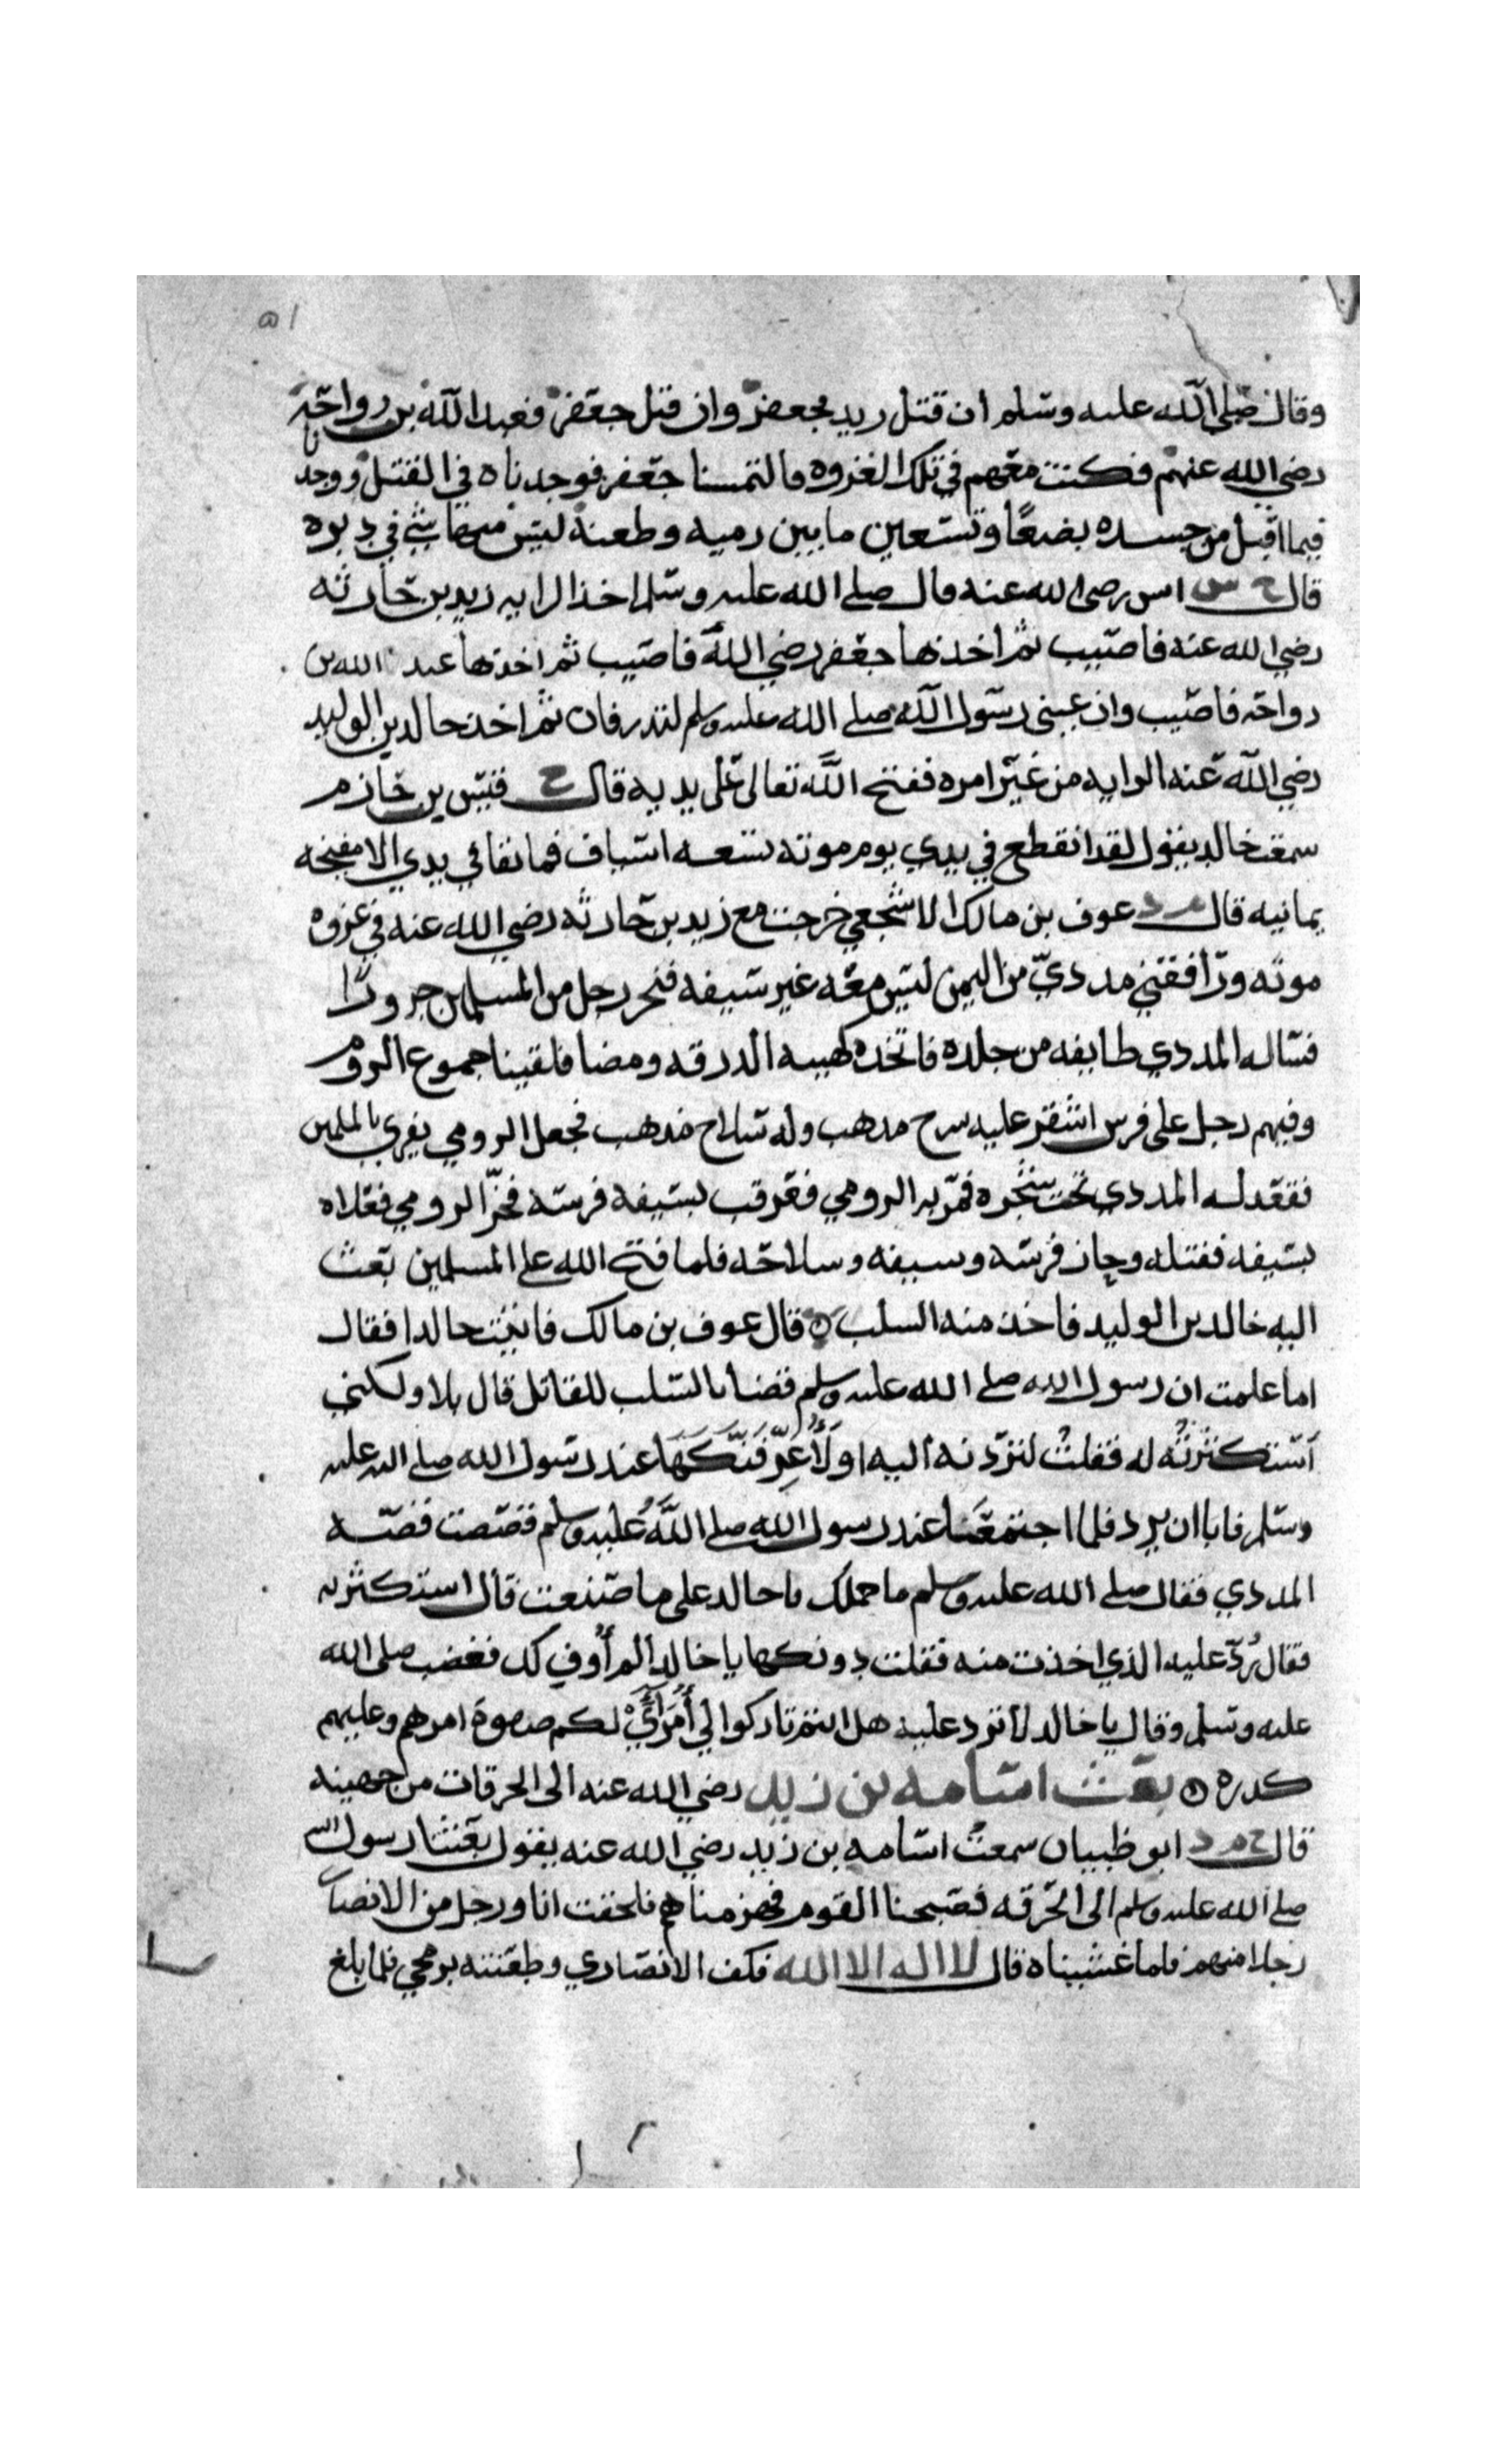 ٥١
وقال صلى الله عليه وسلم ان قتل زيد فجعفر وان قتل جعفر فعبد الله بن رواحه
رضي الله عنهم فكنت معهم في تلك الغزوه فالتمسنا جعفر فوجدناه في القتلى ووجدنا
فيما اقبل من جسده بضعًا وتسعين ما بين رميه وطعنه ليس منها شي في دبره
قال خ س انس رضى الله عنه قال صلى الله عليه وسلم اخذ الرايه زيد بن حارثه
رضي الله عنه فاصيب ثم اخذها جعفر رضي الله فاصيب ثم اخذها عبد الله بن
رواحه فاصيب وان عينى رسول الله صلى الله عليه وسلم لتذرفان ثم اخذ خالد بن الوليد
رضي الله عنه الرايه من غير امره ففتح الله تعالى على يديه قال خ قيس بن حازم
سمعت خالد يقول لقد انقطع في يدي يوم موته تسعه اسياف فما بقا في يدي الا صفيحه
يمانيه قال م د عوف بن مالك الاشجعي خرجت مع زيد بن حارثه رضي الله عنه في غزوه
موته ورافقني مدديّ من اليمن ليس معه غير سيفه فنحر رجل من المسلمين جزورًا
فساله المددي طايفه من جلده فاتخذه كهيه الدرقه ومضا فلقينا جموع الروم
وفيهم رجل على فرس اشقر عليه سرج مذهب وله سلاح مذهب فجعل الرومي يفري بالمسلمين
فقعد له المددي تحت شجره فمر به الرومي فعرقب بسيفه فرسه فخرّ الرومي فعلاه
بسيفه فقتله وحاز فرسه وسيفه وسلاحه فلما فتح الله على المسلمين بعث
اليه خالد بن الوليد فاخذ منه السلب ٥ قال عوف بن مالك فاتيت خالدا فقال
اما علمت ان رسول الله صلى الله عليه وسلم قضا بالسلب للقاتل قال بلا ولكني
استكثرته له فقلت لتردنه اليه او لَأُعَرِّفَنَّكَهَا عند رسول الله صلى الله عليه
وسلم فابا ان يرد فلما اجتمعنا عند رسول الله صلى الله عليه وسلم قصصت قصه
المددي فقال صلى الله عليه وسلم ما حملك يا خالد على ما صنعت قال استكثرته
فقال رُدّ عليه الذي اخذت منه فقلت دونكها يا خالد الم أوفي لك فغضب صلى الله
عليه وسلم وقال يا خالد لا ترد عليه هل انتم تاركوا لي أُمَرَائِيْ لكم صفوة امرهم وعليهم
كدره ٥ بعث اسامه بن زيد رضي الله عنه الى الحرقات من جهينه
قال خ م د ابو ظبيان سمعت اسامه بن زيد رضي الله عنه يقول بعثنا رسول الله
صلى الله عليه وسلم الى الحرقه فصبحنا القوم فهزمناهم فلحقت انا ورجل من الانصار
رجلا منهم فلما غشيناه قال لا اله الا الله فكف الانصاري وطعنته برمحي فلما بلغ